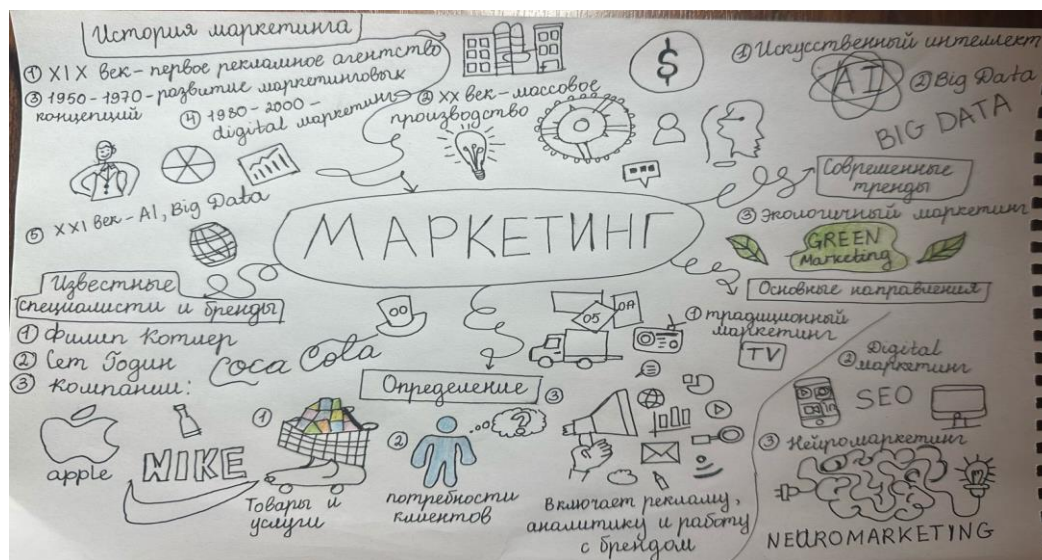 История маркетинга
① XIX век – первое рекламное агентство
③ 1950-1970 – развитие маркетинговых
концепций
④ 1980-2000 –
digital маркетинг
② XX век – массовое
производство
⑤ XXI век – AI, Big Data
$
① Искусственный интеллект
AI
② Big Data
BIG DATA
Современные
тренды
③ Экологичный маркетинг
GREEN
Marketing
МАРКЕТИНГ
Известные
специалисти и бренды
① Филип Котлер
② Сет Годин
③ Компании:
Coca Cola
apple
NIKE
Определение
①
Товары и
услуги
②
?
потребности
клиентов
③
Включает рекламу,
аналитику и работу
с брендом
Основные направления
① традиционный
маркетинг
TV
② Digital
маркетинг
SEO
③ Нейромаркетинг
NEUROMARKETING